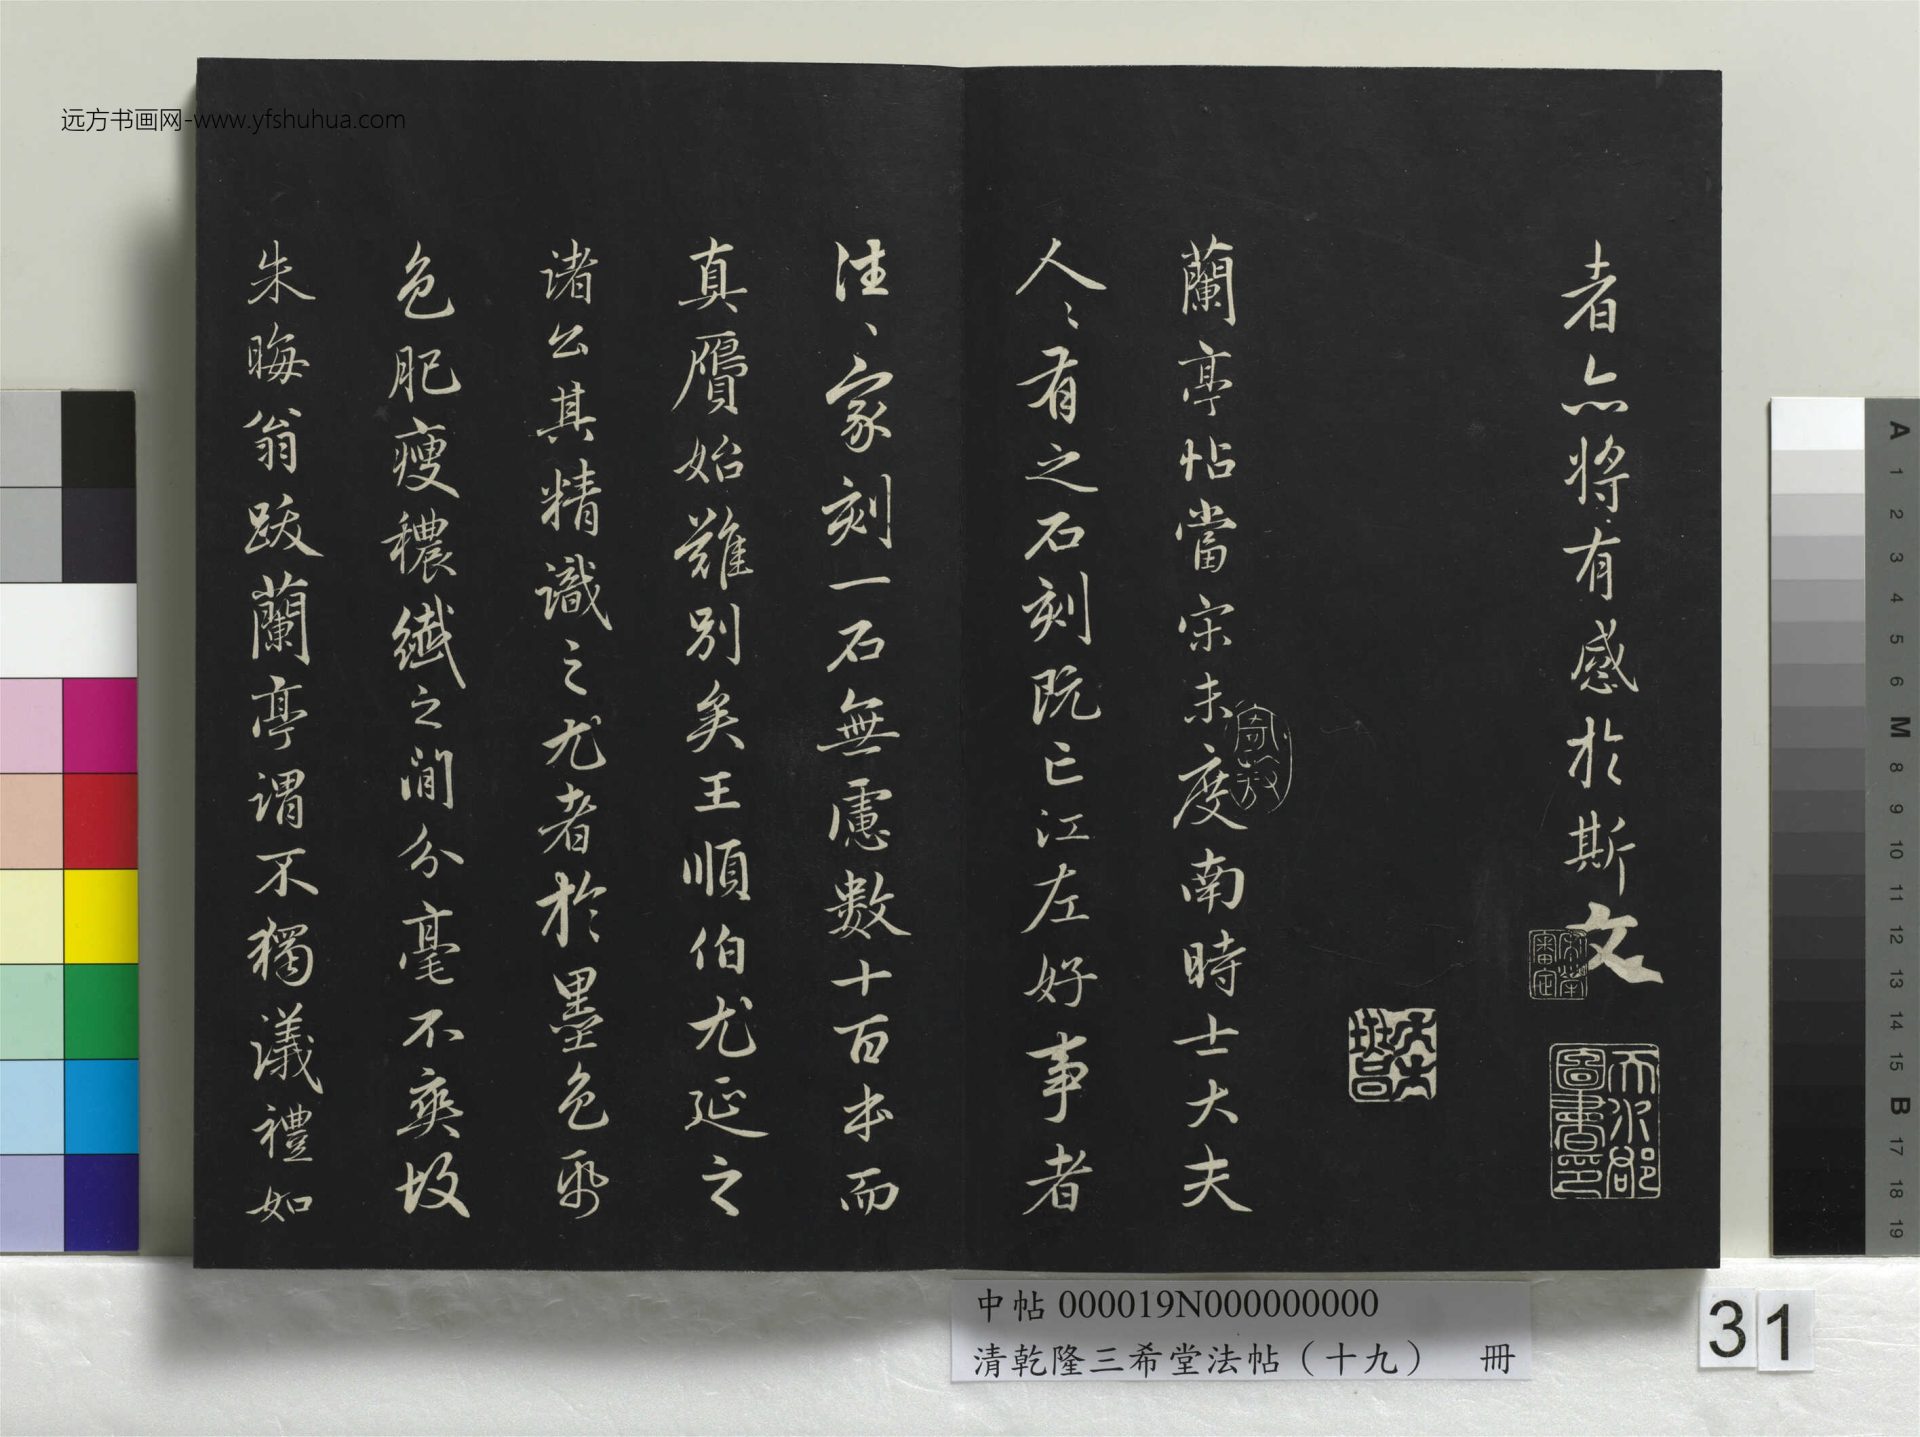 远方书画网-www.yfshuhua.com
者亦將有感於斯文
蘭亭帖當宋未度南時士大夫
人〻有之石刻既亡江左好事者
往〻家刻一石無慮數十百本而
真贋始難別矣王順伯尤延之
诸公其精識之尤者於墨色帋
色肥瘦穠纖之間分毫不爽故
朱晦翁跋蘭亭谓不獨議禮如
天水郡圖書印
中帖 000019N000000000
清乾隆三希堂法帖（十九） 冊
31
A 1 2 3 4 5 6 M 8 9 10 11 12 13 14 15 B 17 18 19